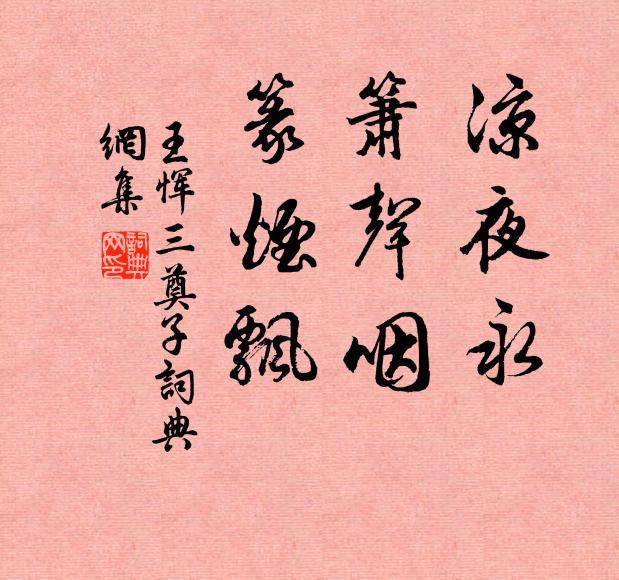 凉夜永
簫聲咽
篆煙飄
王恽三奠子詞典
網集
詞典
网印